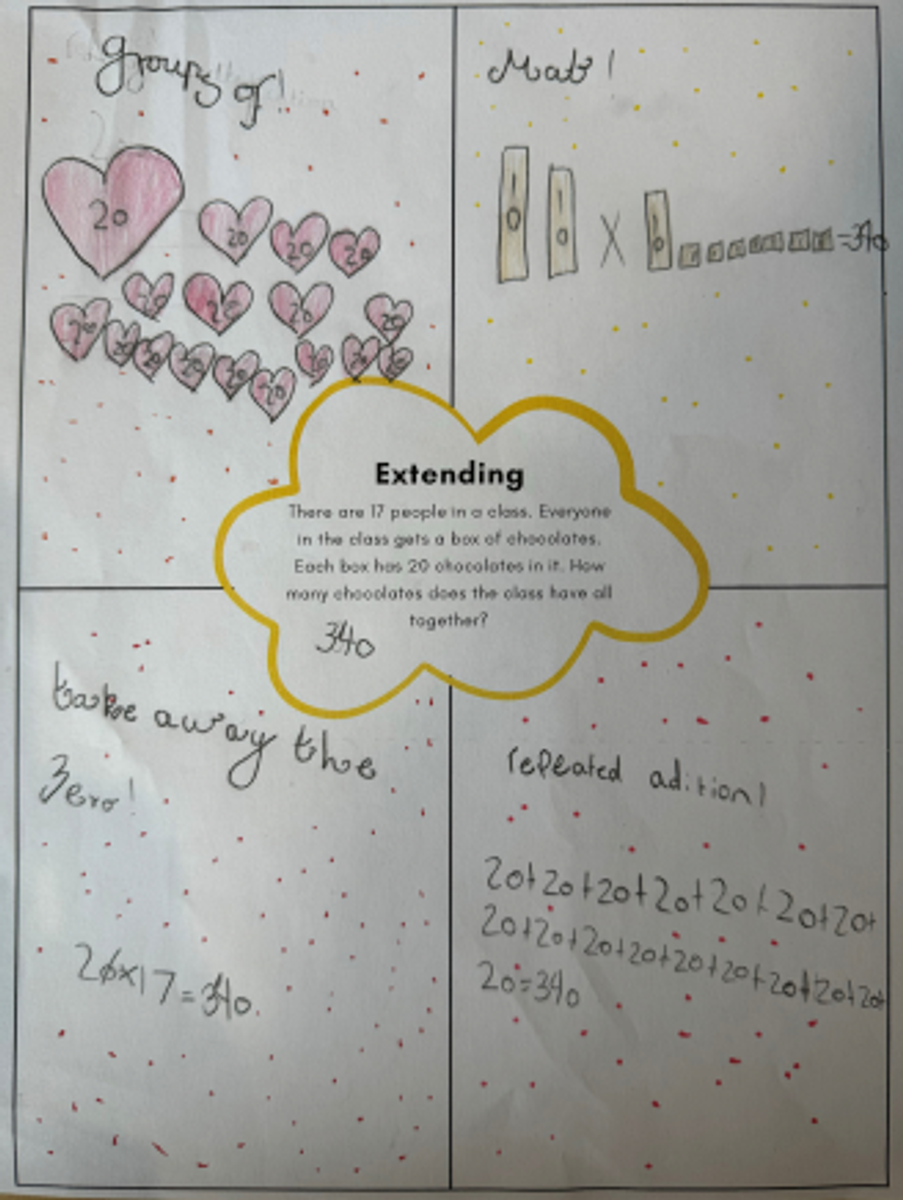 groups of!
20 20 20 20
20 20 20 20
20 20 20 20 20 20 20 20 20
Mat!
10 10 X 10 =340
Extending
There are 17 people in a class. Everyone
in the class gets a box of chocolates.
Each box has 20 chocolates in it. How
many chocolates does the class have all
together?
340
take away the
Zero!
20x17=340.
repeated adition!
20+20+20+20+20+20+20+
20+20+20+20+20+20+20+20+20+
20=340